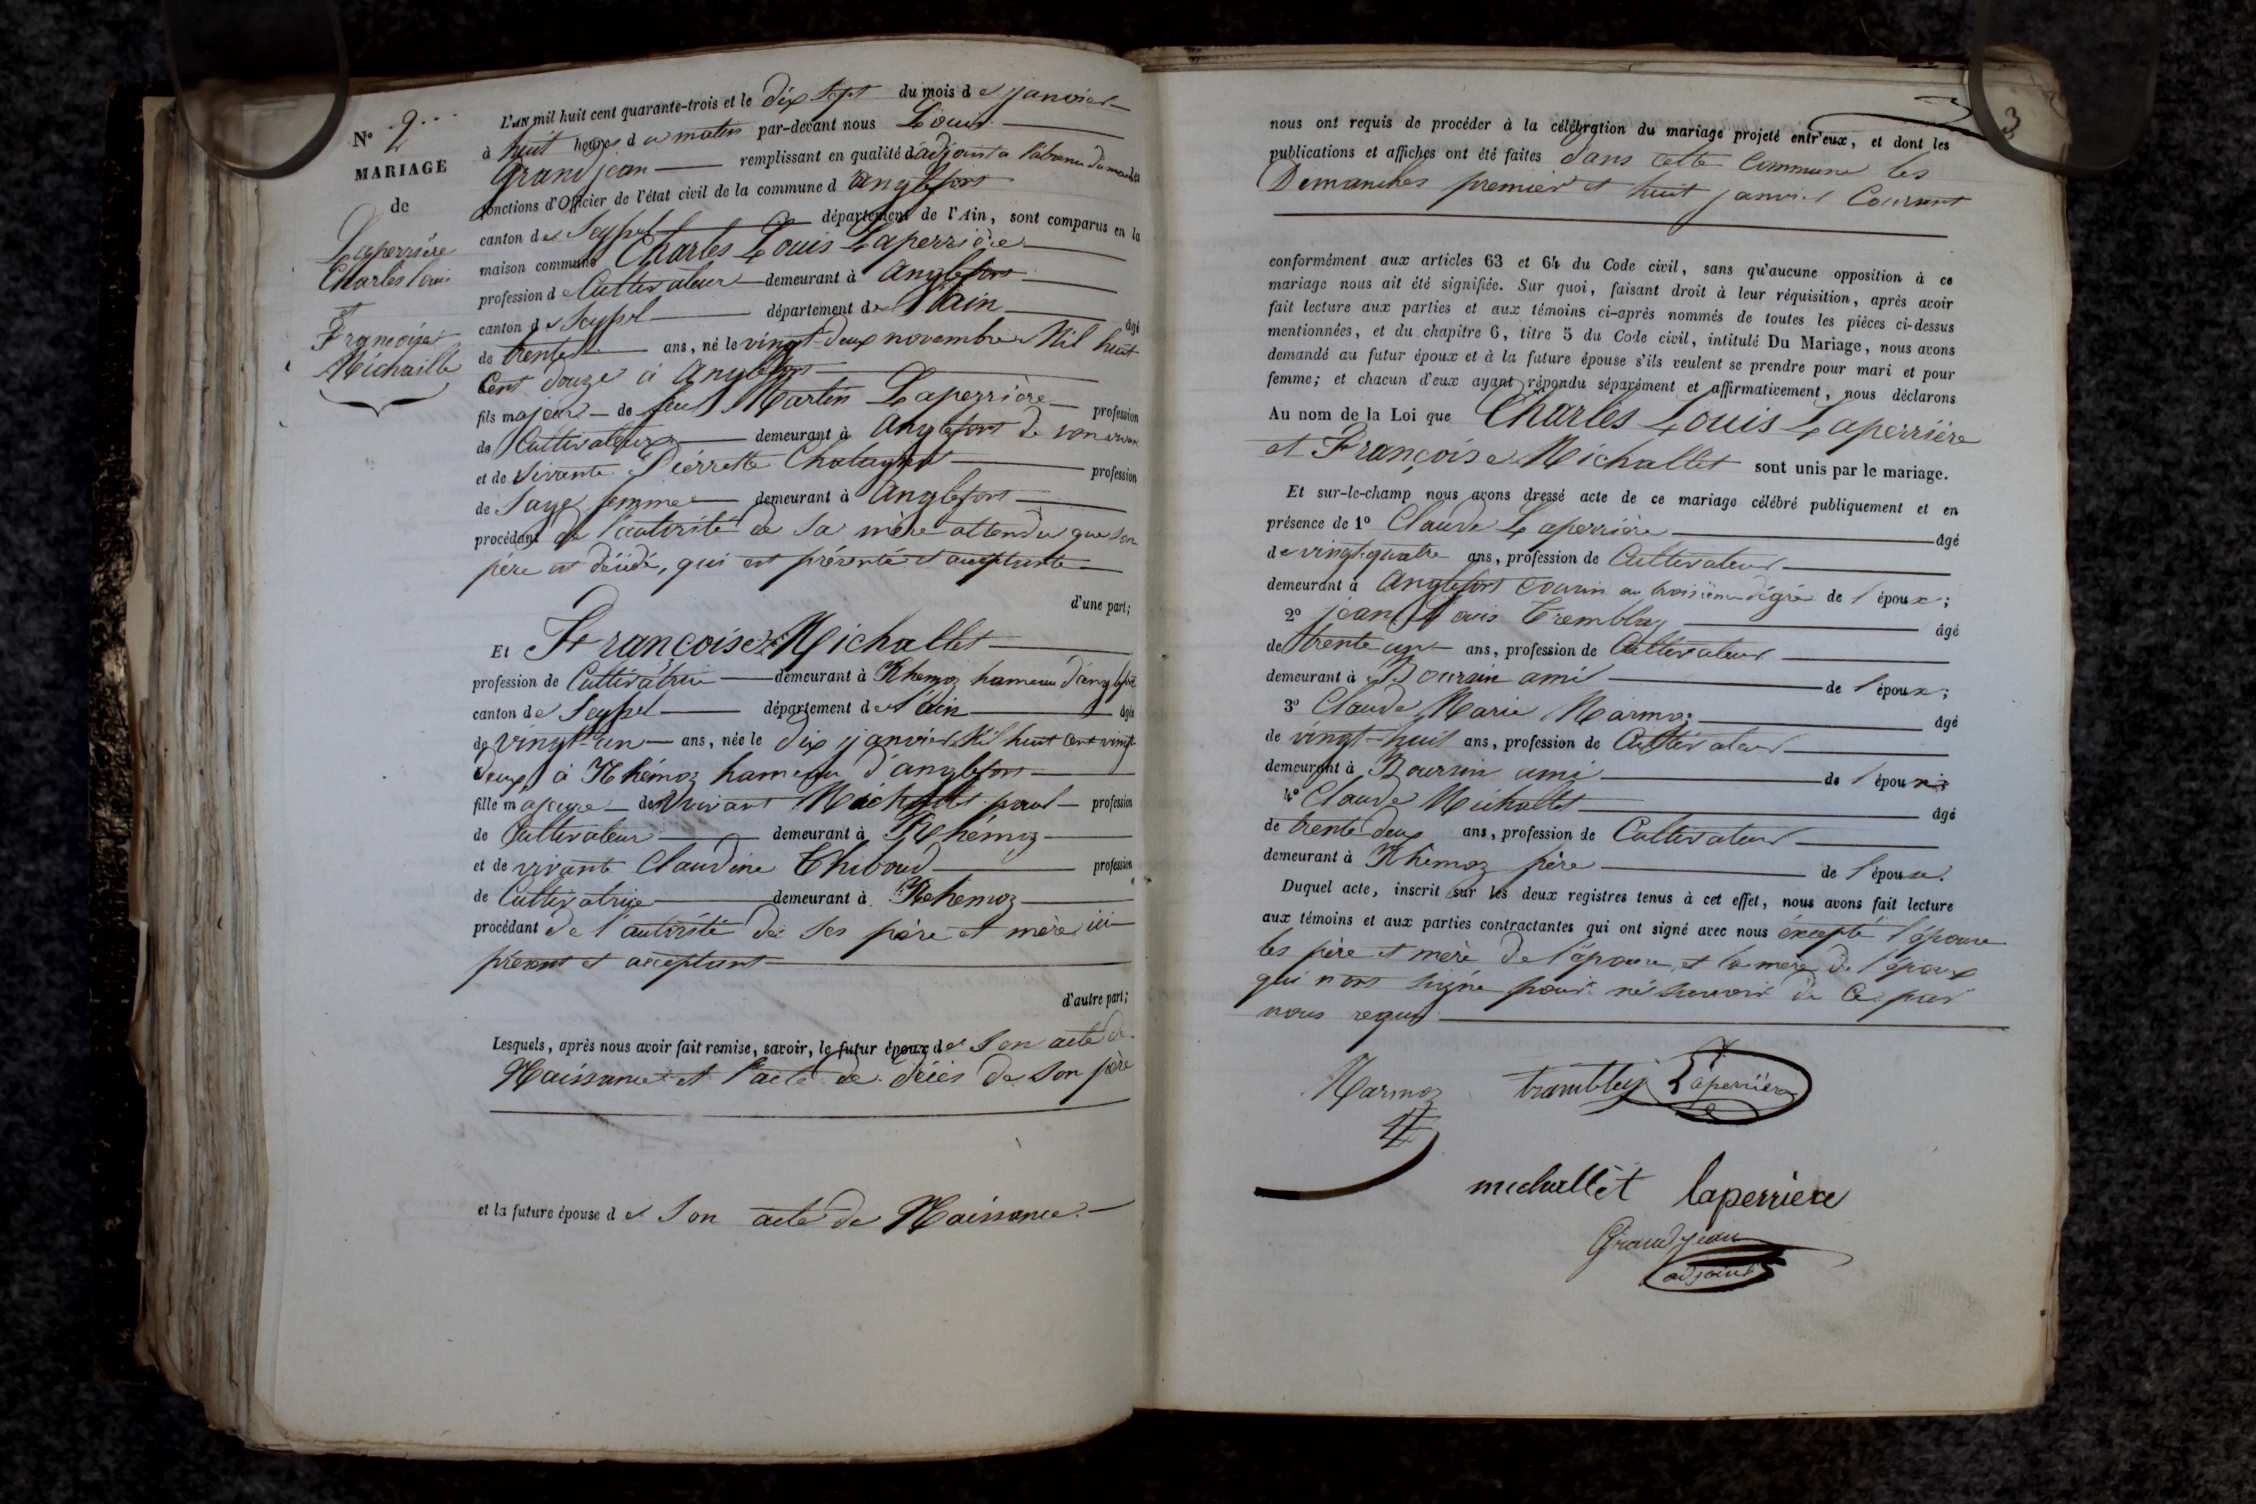 N° 2
MARIAGE
de
Laperrière
Charles Louis
et
Françoise
Michaille
L'an mil huit cent quarante-trois et le dix sept du mois de janvier
à huit heures du matin par-devant nous Louis
Grandjean remplissant en qualité d'adjoint a l'absence du maire les
fonctions d'Officier de l'état civil de la commune d'anglefort
canton de Seyssel département de l'Ain, sont comparus en la
maison commune Charles Louis Laperrière
profession de Cultivateur demeurant à anglefort
canton de Seyssel département de l'ain âgé
de trente ans, né le vingt-deux novembre Mil huit
Cent douze à anglefort
fils majeur de feu Martin Laperrière profession
de Cultivateur demeurant à anglefort de son vivant
et de vivante Pierrette Chatagnat profession
de Sage femme demeurant à anglefort
procédant de l'autorité de sa mère attendu que son
père est décédé, qui est présente et acceptante
d'une part;
Et Françoise Michallet
profession de Cultivatrice demeurant à Rhemoz hameau d'anglefort
canton de Seyssel département de l'ain âgée
de vingt-un ans, née le dix janvier Mil huit cent vingt
deux à Rhémoz hameau d'anglefort
fille majeure de vivant Michallet paul profession
de Cultivateur demeurant à Rhémoz
et de vivante Claudine Thiboud profession
de Cultivatrice demeurant à Rhemoz
procédant de l'autorité de ses père et mère ici
présent et acceptant
d'autre part;
Lesquels, après nous avoir fait remise, savoir, le futur époux de son acte de
Naissance et l'acte de décès de son père
et la future épouse de son acte de Naissance.
3
nous ont requis de procéder à la célébration du mariage projeté entr'eux, et dont les
publications et affiches ont été faites dans cette Commune les
Demanches premier et huit janvier Courant
conformément aux articles 63 et 64 du Code civil, sans qu'aucune opposition à ce
mariage nous ait été signifiée. Sur quoi, faisant droit à leur réquisition, après avoir
fait lecture aux parties et aux témoins ci-après nommés de toutes les pièces ci-dessus
mentionnées, et du chapitre 6, titre 5 du Code civil, intitulé Du Mariage, nous avons
demandé au futur époux et à la future épouse s'ils veulent se prendre pour mari et pour
femme; et chacun d'eux ayant répondu séparément et affirmativement, nous déclarons
Au nom de la Loi que Charles Louis Laperrière
et Françoise Michallet sont unis par le mariage.
Et sur-le-champ nous avons dressé acte de ce mariage célébré publiquement et en
présence de 1° Claude Laperrière âgé
de vingt-quatre ans, profession de Cultivateur
demeurant à anglefort cousin au troisième dégré de l'époux;
2° jean Louis Tremblay âgé
de trente un ans, profession de Cultivateur
demeurant à Boursin ami de l'époux;
3° Claude Marie Marmoz âgé
de vingt-huit ans, profession de Cultivateur
demeurant à Boursin ami de l'époux
4° Claude Michallet âgé
de trente deux ans, profession de Cultivateur
demeurant à Rhemoz frère de l'épouse.
Duquel acte, inscrit sur les deux registres tenus à cet effet, nous avons fait lecture
aux témoins et aux parties contractantes qui ont signé avec nous excepté l'épouse
les père et mère de l'épouse, et la mère de l'époux
qui n'ont signé pour ne savoir de ce par
nous requis
Marmoz trambley Laperrière
michallet laperriere
Grandjean
adjoint